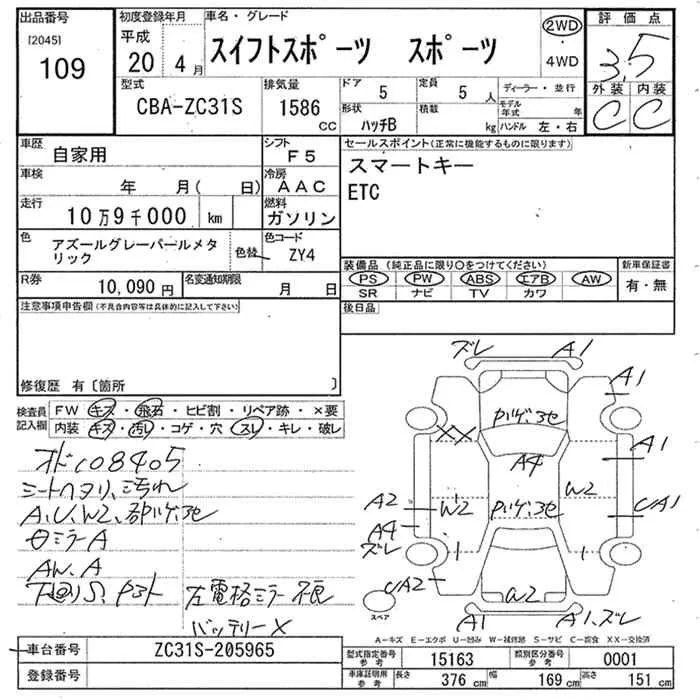 出品番号 初度登録年月 車名・グレード 2WD 評価点
[2045] 平成 スイフトスポーツ スポーツ 4WD 3.5
109 20年 4月 外装 内装
C C
型式 排気量 ドア 5 定員 5人 ディーラー・並行
CBA-ZC31S 1586cc 形状 ハッチB 積載 kg モデル年式 年
ハンドル 左・右
車歴 自家用 シフト F5 セールスポイント(正常に機能するものに限ります)
車検 年 月( 日) 冷房 AAC スマートキー
走行 10万9千000 km 燃料 ガソリン ETC
色 アズールグレーパールメタリック 色替 色コード ZY4
装備品(純正品に限り○をつけてください) 新車保証書
R券 10,090円 名変通知期限 月 日 PS PW ABS エアB AW 有・無
SR ナビ TV カワ
注意事項申告欄(不具合内容等は具体的に記入して下さい) 後日品
修復歴 有〔箇所 〕
検査員記入欄 FW キズ・飛石・ヒビ割・リペア跡・×要
内装 キズ・汚れ・コゲ・穴・スレ・キレ・破レ
オドロ108405
シートヘタリ、汚れ
A、U、W2、部パゲ、3セ
ミラーA
AW、A
下回りS
左電格ミラー不良
バッテリー×
ズレ A1
A1
パゲ、3セ
XX
A4 A1
A2 W2 パゲ、3セ W2 UA1
A4
ズレ
UA2
スペア
A1 A1、ズレ
A-キズ E-エクボ U-凹み W-補修跡 S-サビ C-腐食 XX-交換済
車台番号 ZC31S-205965
登録番号
型式指定番号参考 15163 類別区分番号参考 0001
車庫証明用参考 長さ 376cm 幅 169cm 高さ 151cm